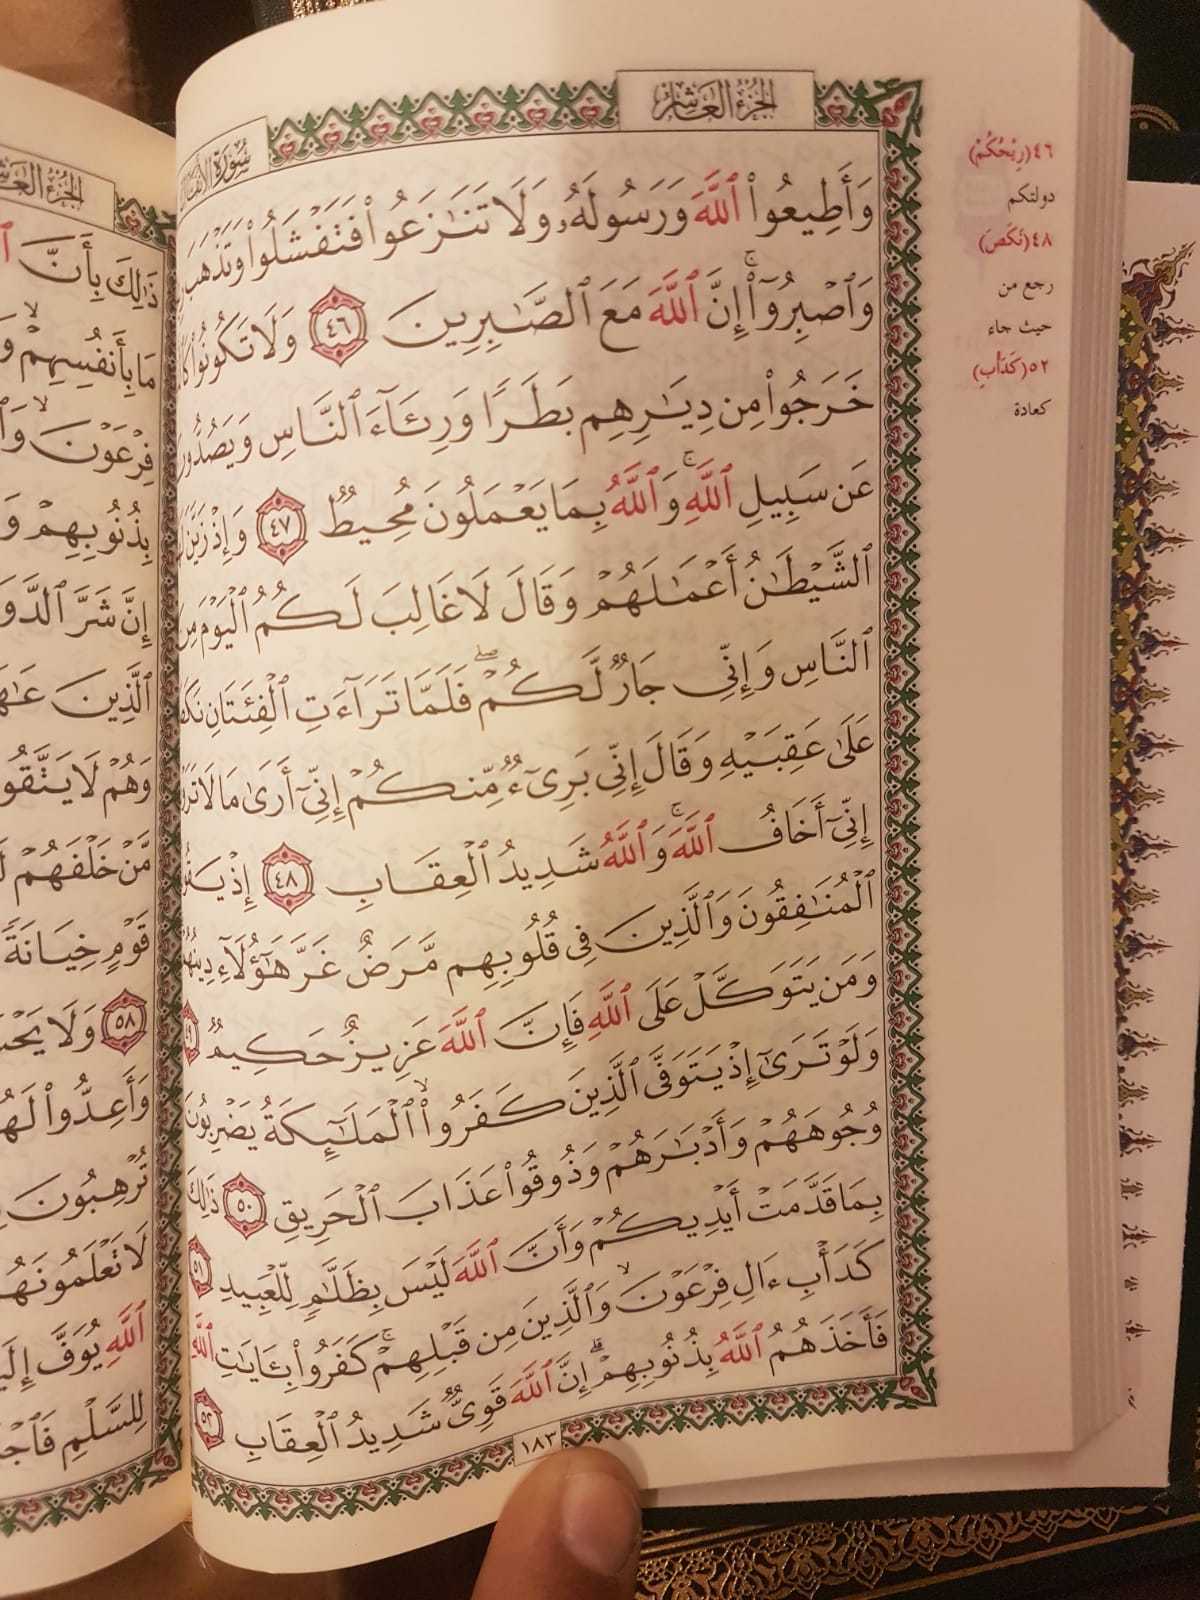 الجزء العاشر
سورة الأنفال
وَأَطِيعُوا۟ ٱللَّهَ وَرَسُولَهُۥ وَلَا تَنَـٰزَعُوا۟ فَتَفْشَلُوا۟ وَتَذْهَبَ
وَٱصْبِرُوٓا۟ ۚ إِنَّ ٱللَّهَ مَعَ ٱلصَّـٰبِرِينَ ٤٦ وَلَا تَكُونُوا۟
خَرَجُوا۟ مِن دِيَـٰرِهِم بَطَرًا وَرِئَآءَ ٱلنَّاسِ وَيَصُدُّونَ
عَن سَبِيلِ ٱللَّهِ ۚ وَٱللَّهُ بِمَا يَعْمَلُونَ مُحِيطٌ ٤٧ وَإِذْ زَيَّنَ
ٱلشَّيْطَـٰنُ أَعْمَـٰلَهُمْ وَقَالَ لَا غَالِبَ لَكُمُ ٱلْيَوْمَ مِنَ
ٱلنَّاسِ وَإِنِّى جَارٌ لَّكُمْ ۖ فَلَمَّا تَرَآءَتِ ٱلْفِئَتَانِ
عَلَىٰ عَقِبَيْهِ وَقَالَ إِنِّى بَرِىٓءٌ مِّنكُمْ إِنِّىٓ أَرَىٰ مَا لَا
إِنِّىٓ أَخَافُ ٱللَّهَ ۚ وَٱللَّهُ شَدِيدُ ٱلْعِقَابِ ٤٨ إِذْ
ٱلْمُنَـٰفِقُونَ وَٱلَّذِينَ فِى قُلُوبِهِم مَّرَضٌ غَرَّ هَـٰٓؤُلَآءِ دِينُهُمْ
وَمَن يَتَوَكَّلْ عَلَى ٱللَّهِ فَإِنَّ ٱللَّهَ عَزِيزٌ حَكِيمٌ
وَلَوْ تَرَىٰٓ إِذْ يَتَوَفَّى ٱلَّذِينَ كَفَرُوا۟ ۙ ٱلْمَلَـٰٓئِكَةُ يَضْرِبُونَ
وُجُوهَهُمْ وَأَدْبَـٰرَهُمْ وَذُوقُوا۟ عَذَابَ ٱلْحَرِيقِ ٥٠ ذَٰلِكَ
بِمَا قَدَّمَتْ أَيْدِيكُمْ وَأَنَّ ٱللَّهَ لَيْسَ بِظَلَّـٰمٍ لِّلْعَبِيدِ ٥١
كَدَأْبِ ءَالِ فِرْعَوْنَ ۙ وَٱلَّذِينَ مِن قَبْلِهِمْ ۚ كَفَرُوا۟ بِـَٔايَـٰتِ ٱللَّهِ
فَأَخَذَهُمُ ٱللَّهُ بِذُنُوبِهِمْ ۗ إِنَّ ٱللَّهَ قَوِىٌّ شَدِيدُ ٱلْعِقَابِ ٥٢
١٨٣
٤٦(رِيْحُكُمْ)
دولتكم
٤٨(نَكَصَ)
رجع من
حيث جاء
٥٢(كَدَأْبِ)
كعادة
الجزء العاشر
ذَٰلِكَ بِأَنَّ
مَا بِأَنفُسِهِمْ ۙ
فِرْعَوْنَ ۙ
بِذُنُوبِهِمْ
إِنَّ شَرَّ
ٱلَّذِينَ
وَهُمْ لَا يَتَّقُونَ
مَّنْ خَلْفَهُمْ
قَوْمٍ خِيَانَةً
٥٨ وَلَا
وَأَعِدُّوا۟
تُرْهِبُونَ
لَا تَعْلَمُونَهُمُ
ٱللَّهِ يُوَفَّ
لِلسَّلْمِ